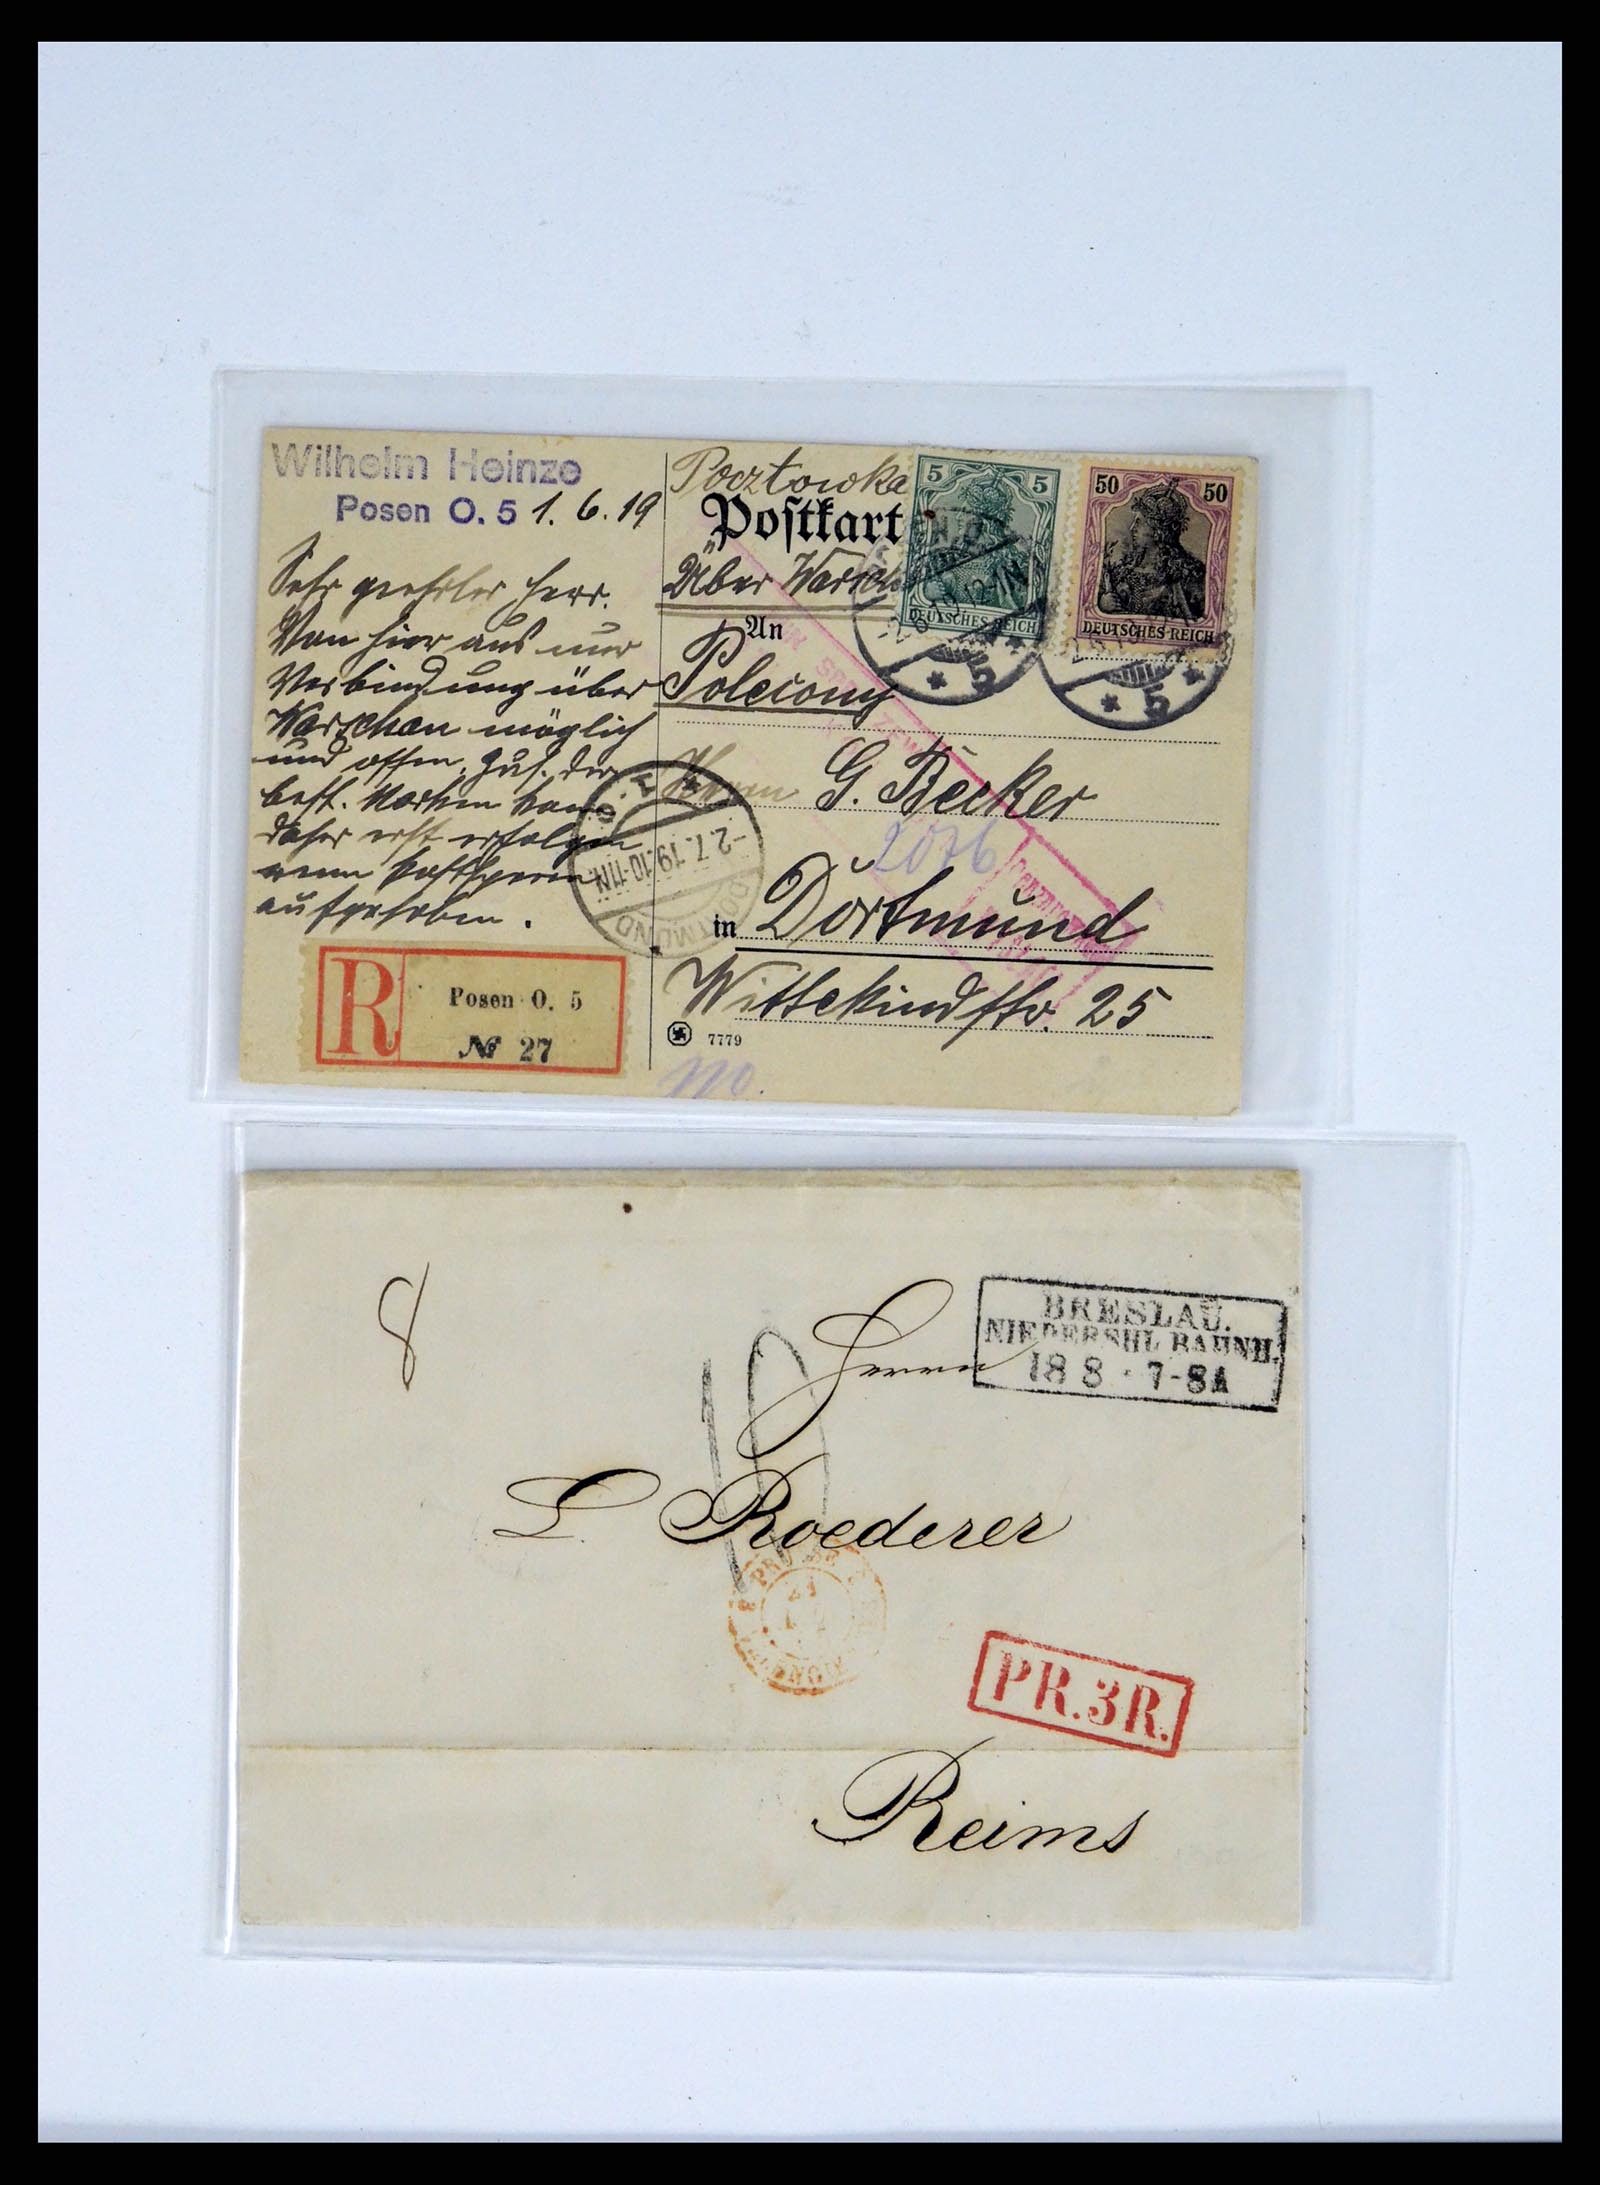 Wilhelm Heinze
Posen O. 5 1. 6. 19
Sehr geehrter Herr.
Von hier aus nur
Verbindung über
Warschau möglich
und offen. Zus. der
best. Marken kann
daher erst erfolgen
wenn Postsperre
aufgehoben.
R
Posen O. 5
№ 27
Pocztowka
Postkart
Über Warsch
An
Polecony
Herrn G. Becker
2076
in Dortmund
Wittekindstr. 25
7779
5 5
DEUTSCHES REICH
50 50
DEUTSCHES REICH
5
5
DORTMUND
-2.7.19.10-11N.
8
BRESLAU.
NIEDERSHL BAHNH.
18 8 · 7-8A
Herrn
L. Roederer
PR.3R.
Reims